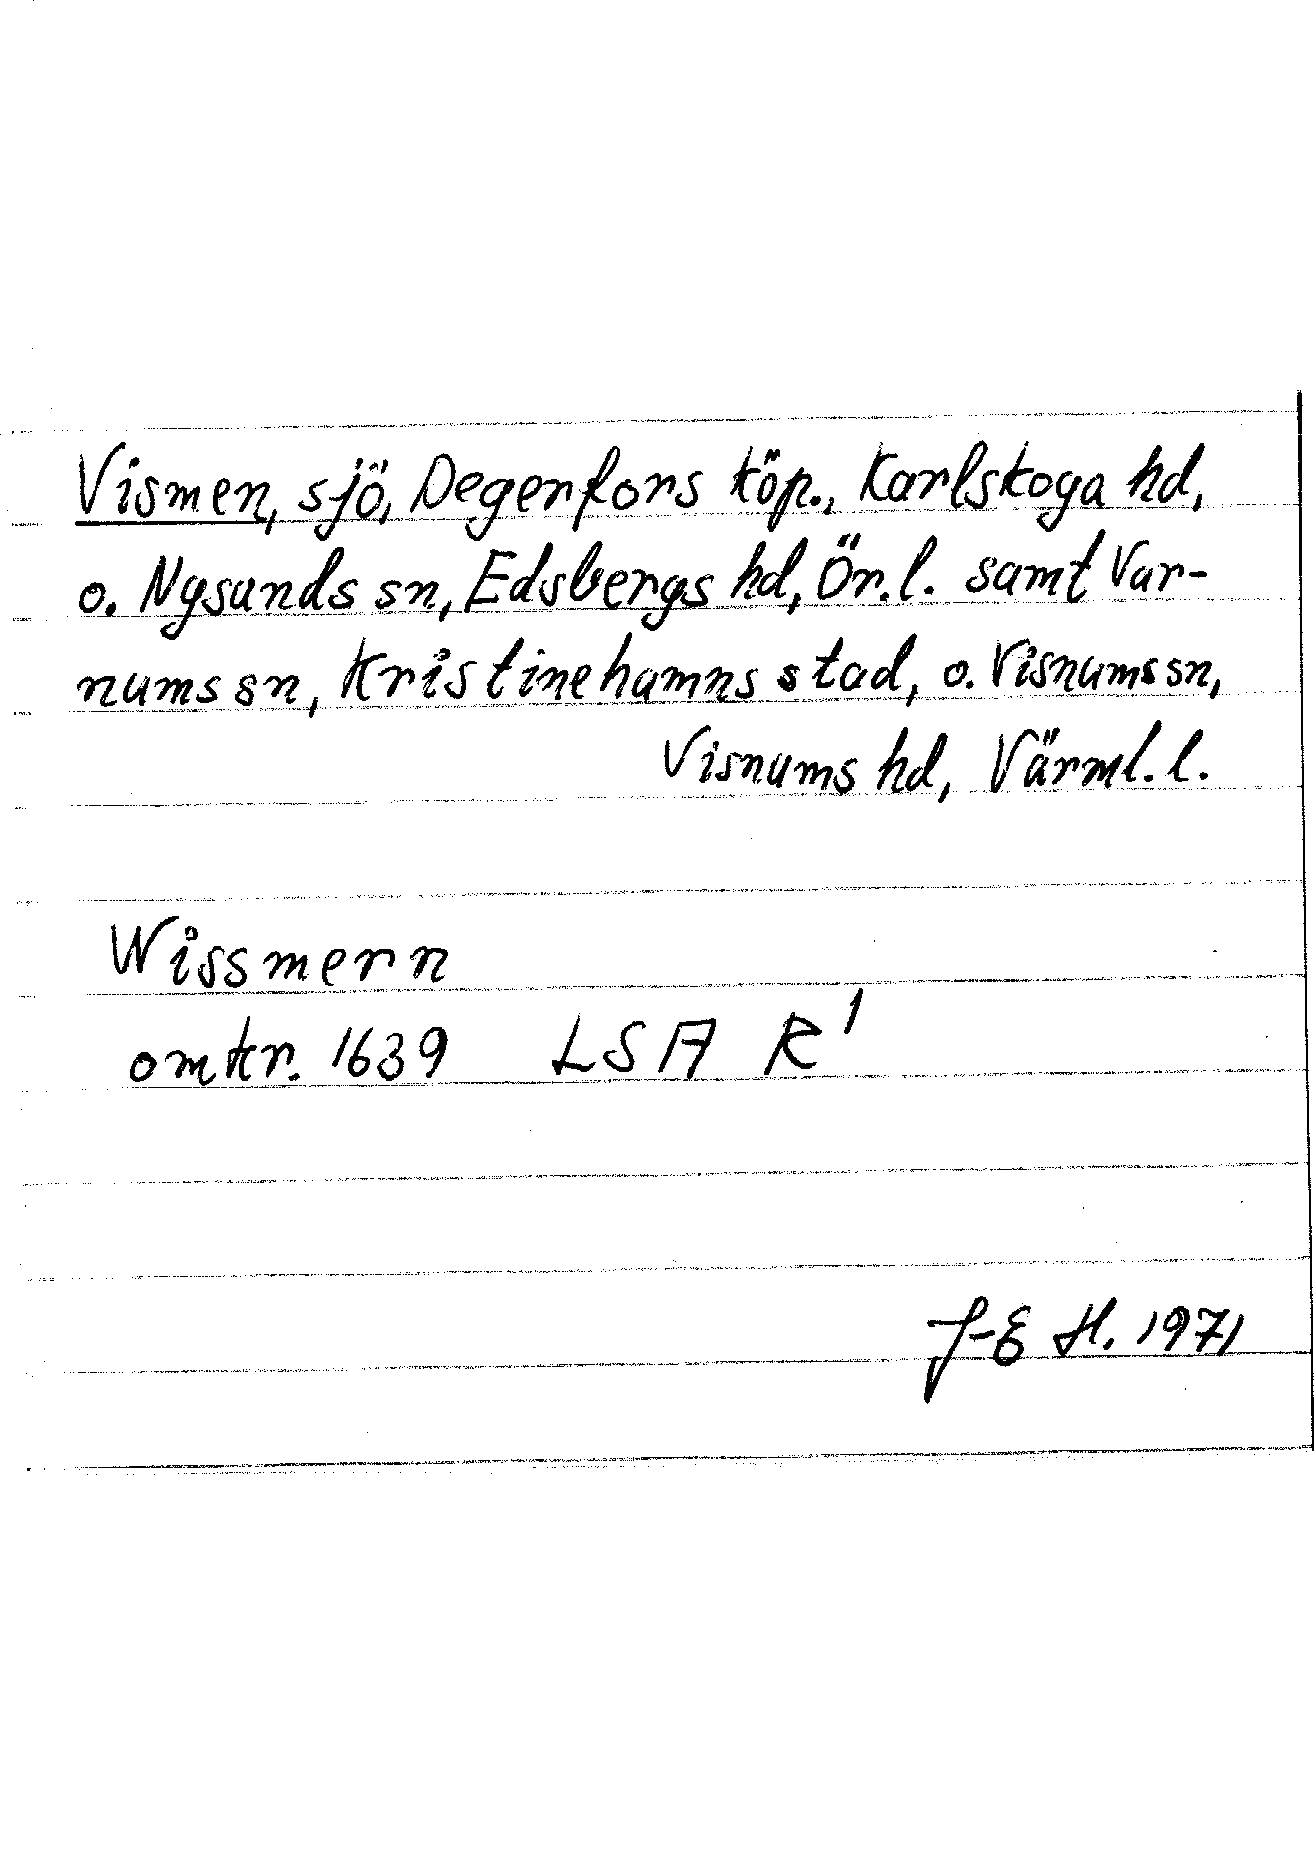 Vismen, sjö, Degerfors köp., Karlskoga hd,
o. Nysunds sn, Edsbergs hd, Ör.l. samt Var-
nums sn, Kristinehamns stad, o. Visnums sn,
Visnums hd, Värml. l.
Wissmern
omkr. 1639 LSA R¹
J-E H. 1971